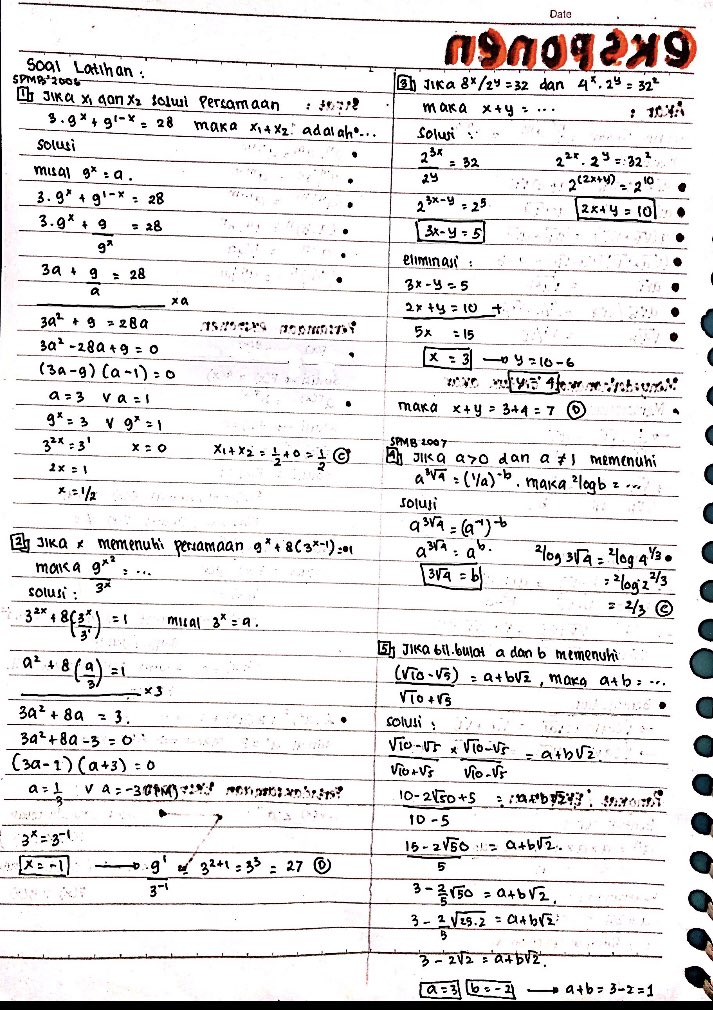 Date
eksponen
Soal Latihan :
SPMB '2006
1. Jika x₁ dan x₂ solusi persamaan
3.9ˣ + 9¹⁻ˣ = 28 maka x₁+x₂ adalah...
solusi
misal 9ˣ = a.
3.9ˣ + 9¹⁻ˣ = 28
3.9ˣ + 9/9ˣ = 28
3a + 9/a = 28
xa
3a² + 9 = 28a
3a² - 28a + 9 = 0
(3a-9) (a-1) = 0
a = 3 v a = 1
9ˣ = 3 v 9ˣ = 1
3²ˣ = 3¹ x = 0 x₁+x₂ = 1/2 + 0 = 1/2 Ⓒ
2x = 1
x = 1/2
2. Jika x memenuhi persamaan 9ˣ + 8(3ˣ⁻¹) = 1
maka 9ˣ²/3ˣ = ...
solusi :
3²ˣ + 8(3ˣ/3¹) = 1 misal 3ˣ = a.
a² + 8(a/3) = 1
x3
3a² + 8a = 3.
3a² + 8a - 3 = 0
(3a-1) (a+3) = 0
a = 1/3 v a = -3 (TM)
3ˣ = 3⁻¹
x = -1 → 9¹/3⁻¹ = 3²⁺¹ = 3³ = 27 Ⓓ
3. Jika 8ˣ/2ʸ = 32 dan 4ˣ.2ʸ = 32²
maka x+y = ...
solusi :
2³ˣ/2ʸ = 32 2²ˣ.2ʸ = 32²
2⁽²ˣ⁺ʸ⁾ = 2¹⁰
2³ˣ⁻ʸ = 2⁵ 2x+y = 10
3x-y = 5
eliminasi :
3x-y = 5
2x+y = 10 +
5x = 15
x = 3 → y = 10-6
y = 4
maka x+y = 3+4 = 7 Ⓓ
SPMB 2007
4. Jika a>0 dan a≠1 memenuhi
a³√4 = (1/a)⁻ᵇ. maka ²logb = ...
solusi
a³√4 = (a⁻¹)⁻ᵇ
a³√4 = aᵇ. ²log 3√4 = ²log 4^1/3
3√4 = b = ²log 2^2/3
= 2/3 Ⓒ
5. Jika bil.bulat a dan b memenuhi
(√10 - √5)/√10 + √5 = a+b√2, maka a+b = ...
solusi :
√10-√5/√10+√5 x √10-√5/√10-√5 = a+b√2
10-2√50+5/10-5 = a+b√2
15-2√50/5 = a+b√2.
3-2/5√50 = a+b√2.
3-2/5√25.2 = a+b√2
3-2√2 = a+b√2.
a=3 b=-2 → a+b = 3-2 = 1